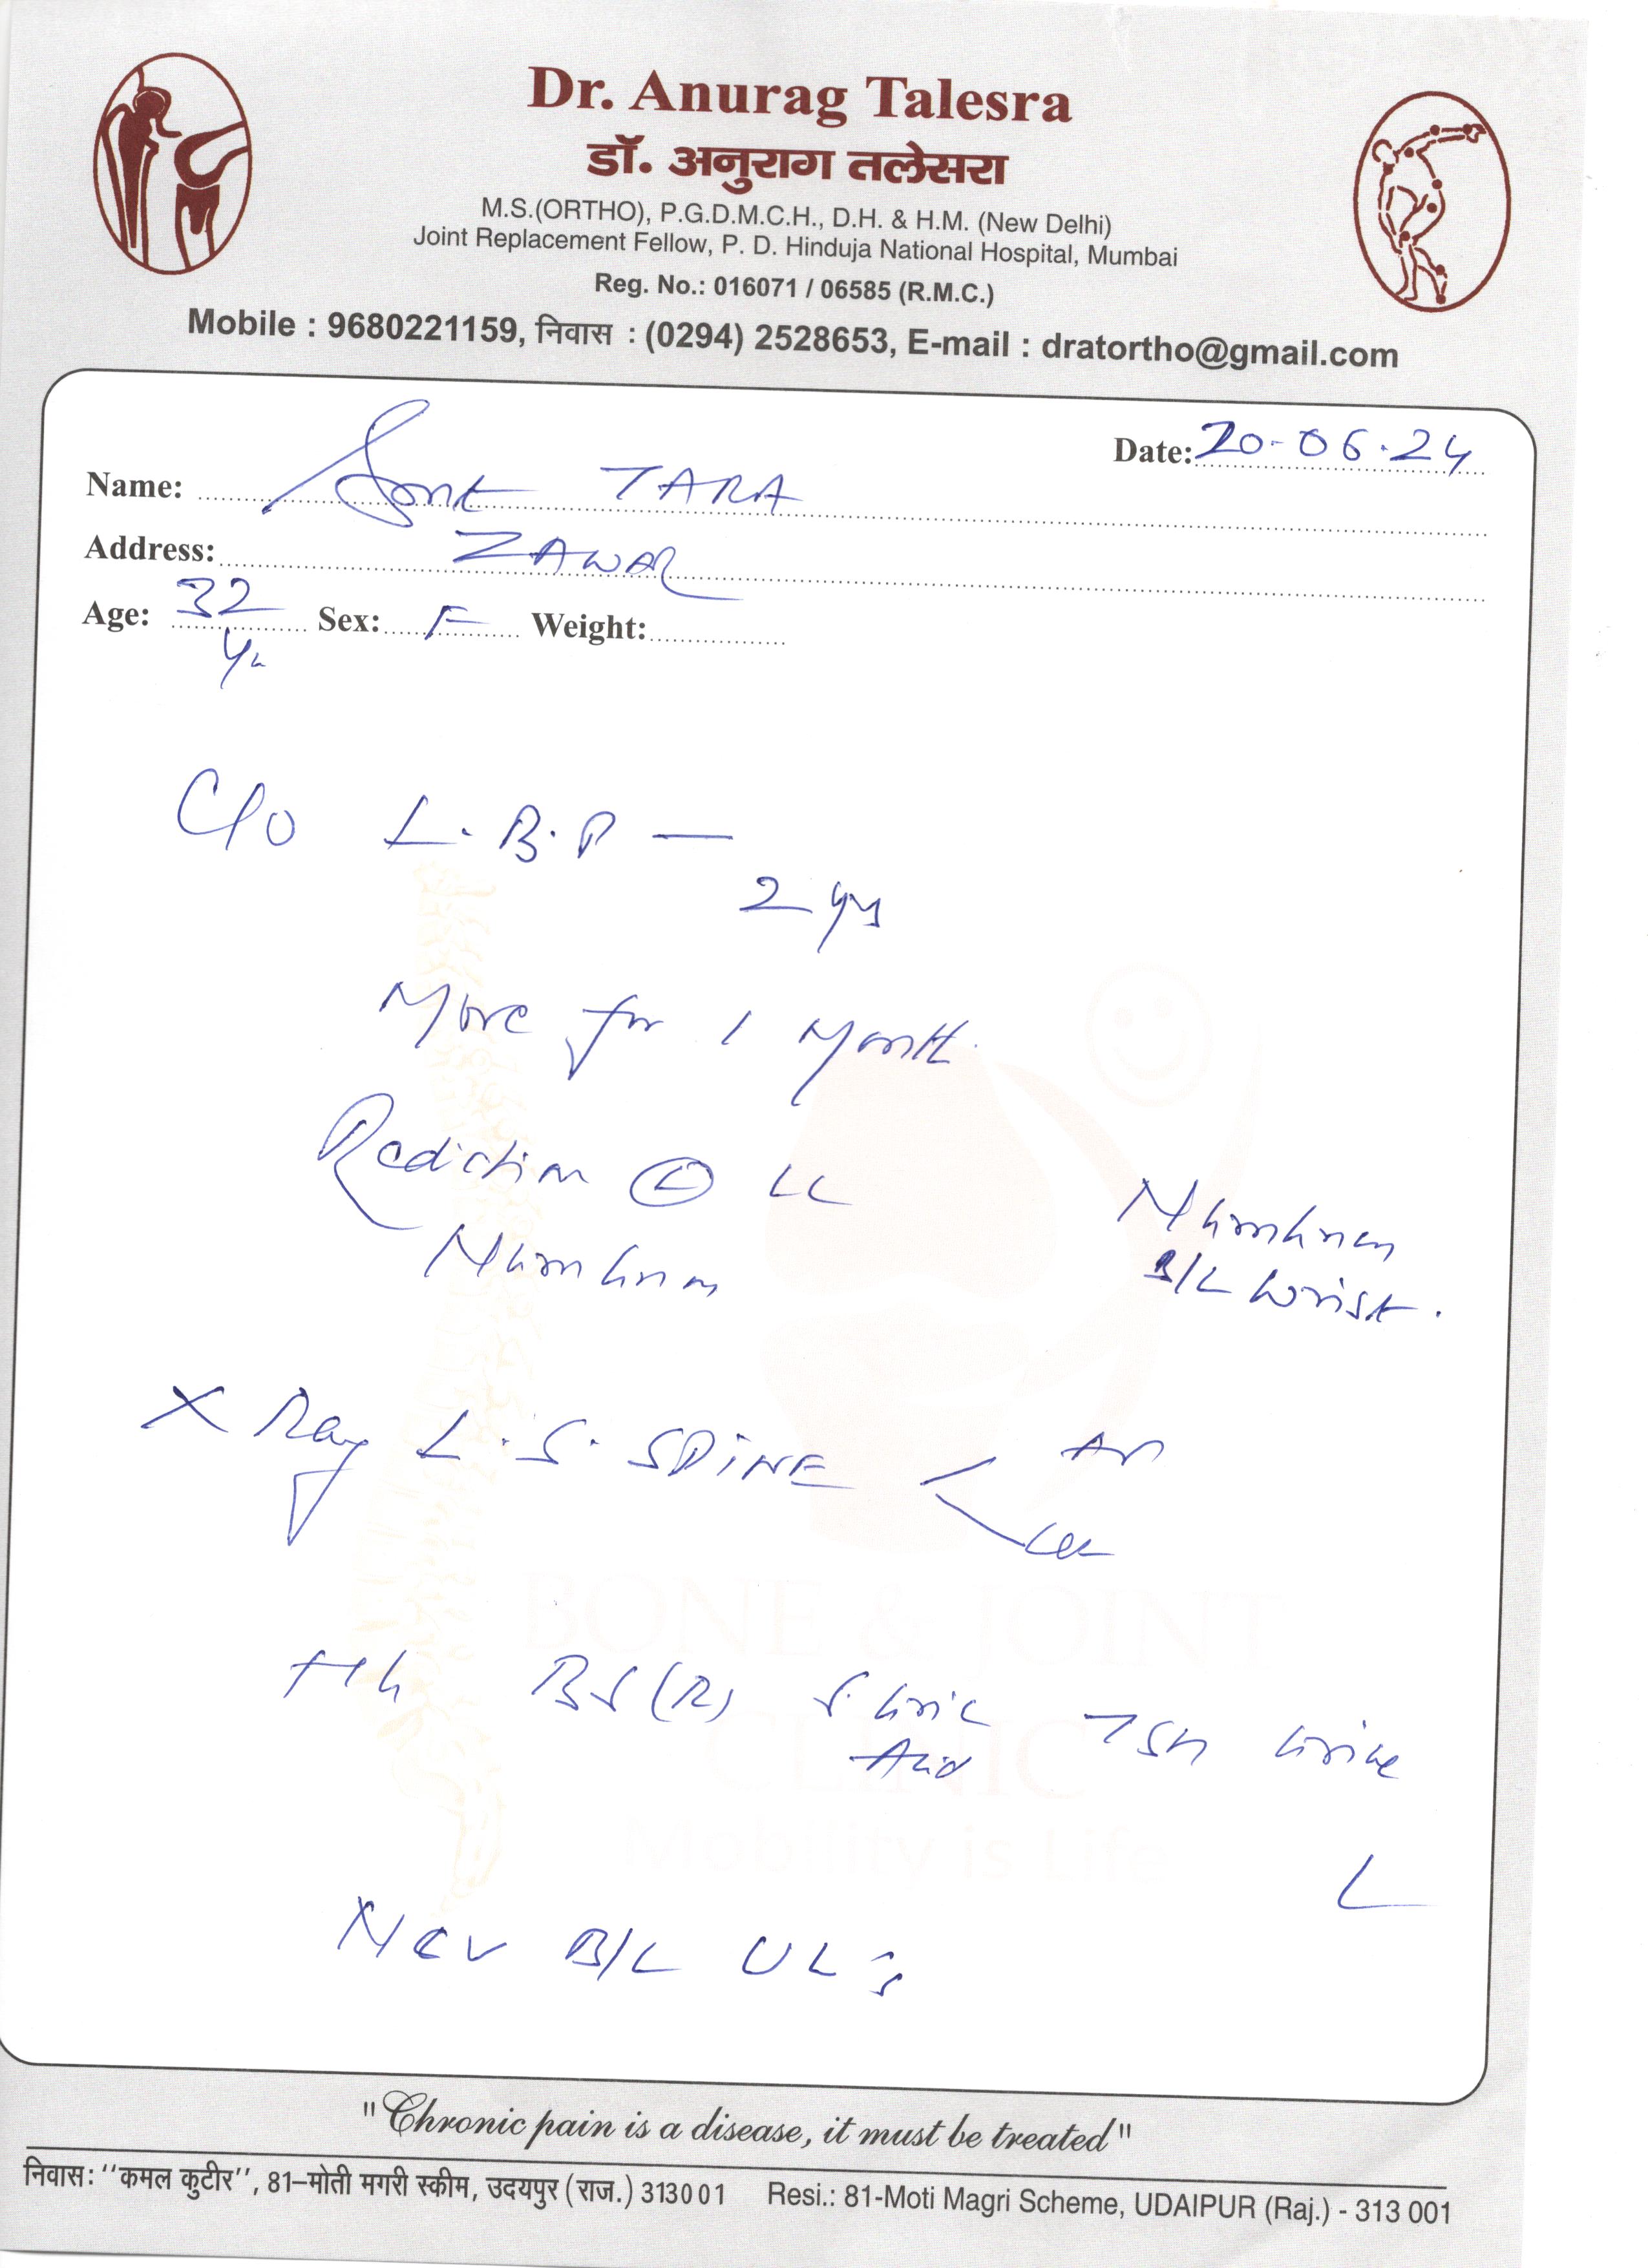 Dr. Anurag Talesra
डॉ. अनुराग तलेसरा
M.S.(ORTHO), P.G.D.M.C.H., D.H. & H.M. (New Delhi)
Joint Replacement Fellow, P. D. Hinduja National Hospital, Mumbai
Reg. No.: 016071 / 06585 (R.M.C.)
Mobile : 9680221159, निवास : (0294) 2528653, E-mail : dratortho@gmail.com
Date: 20-06-24
Name: Smt TARA
Address: ZAWAR
Age: 32 Sex: F Weight:
Yr
C/o L.B.P —
2 yrs
More for 1 Month
Radiation L LL
Numbness
Numbness
B/L wrist.
X Ray L.S. SPINE AP
Lat
Hb BS(R) S. Uric TSH Urine
Acid
NCV B/L UL's
BONE & JOINT
CLINIC
Mobility is Life
"Chronic pain is a disease, it must be treated"
निवास: "कमल कुटीर", 81–मोती मगरी स्कीम, उदयपुर (राज.) 313001 Resi.: 81-Moti Magri Scheme, UDAIPUR (Raj.) - 313 001